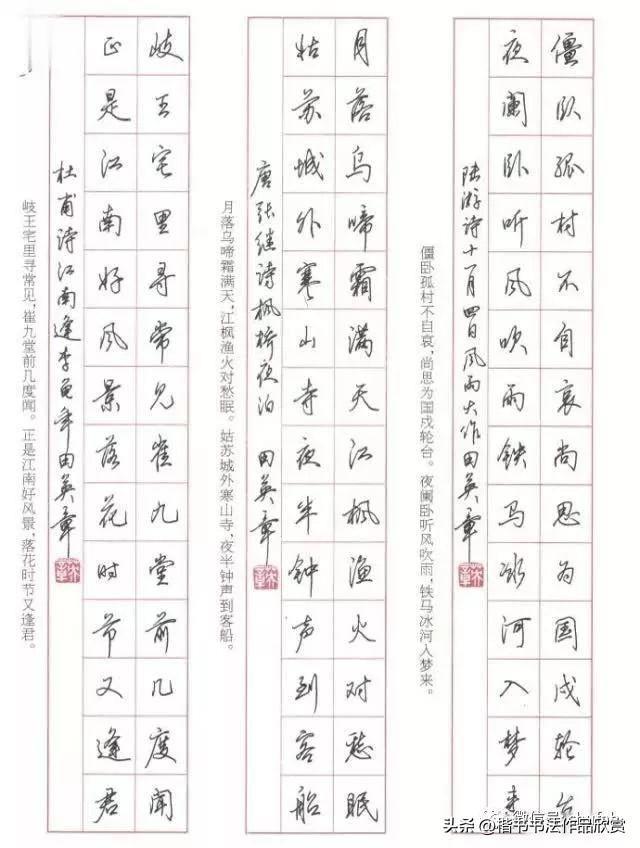 僵卧孤村不自哀尚思为国戍轮台
夜阑卧听风吹雨铁马冰河入梦来
陆游诗十一月四日风雨大作田英章
僵卧孤村不自哀，尚思为国戍轮台。夜阑卧听风吹雨，铁马冰河入梦来。
月落乌啼霜满天江枫渔火对愁眠
姑苏城外寒山寺夜半钟声到客船
唐张继诗枫桥夜泊 田英章
月落乌啼霜满天，江枫渔火对愁眠。姑苏城外寒山寺，夜半钟声到客船。
岐王宅里寻常见崔九堂前几度闻
正是江南好风景落花时节又逢君
杜甫诗江南逢李龟年田英章
岐王宅里寻常见，崔九堂前几度闻。正是江南好风景，落花时节又逢君。
头条 @楷书书法作品欣赏